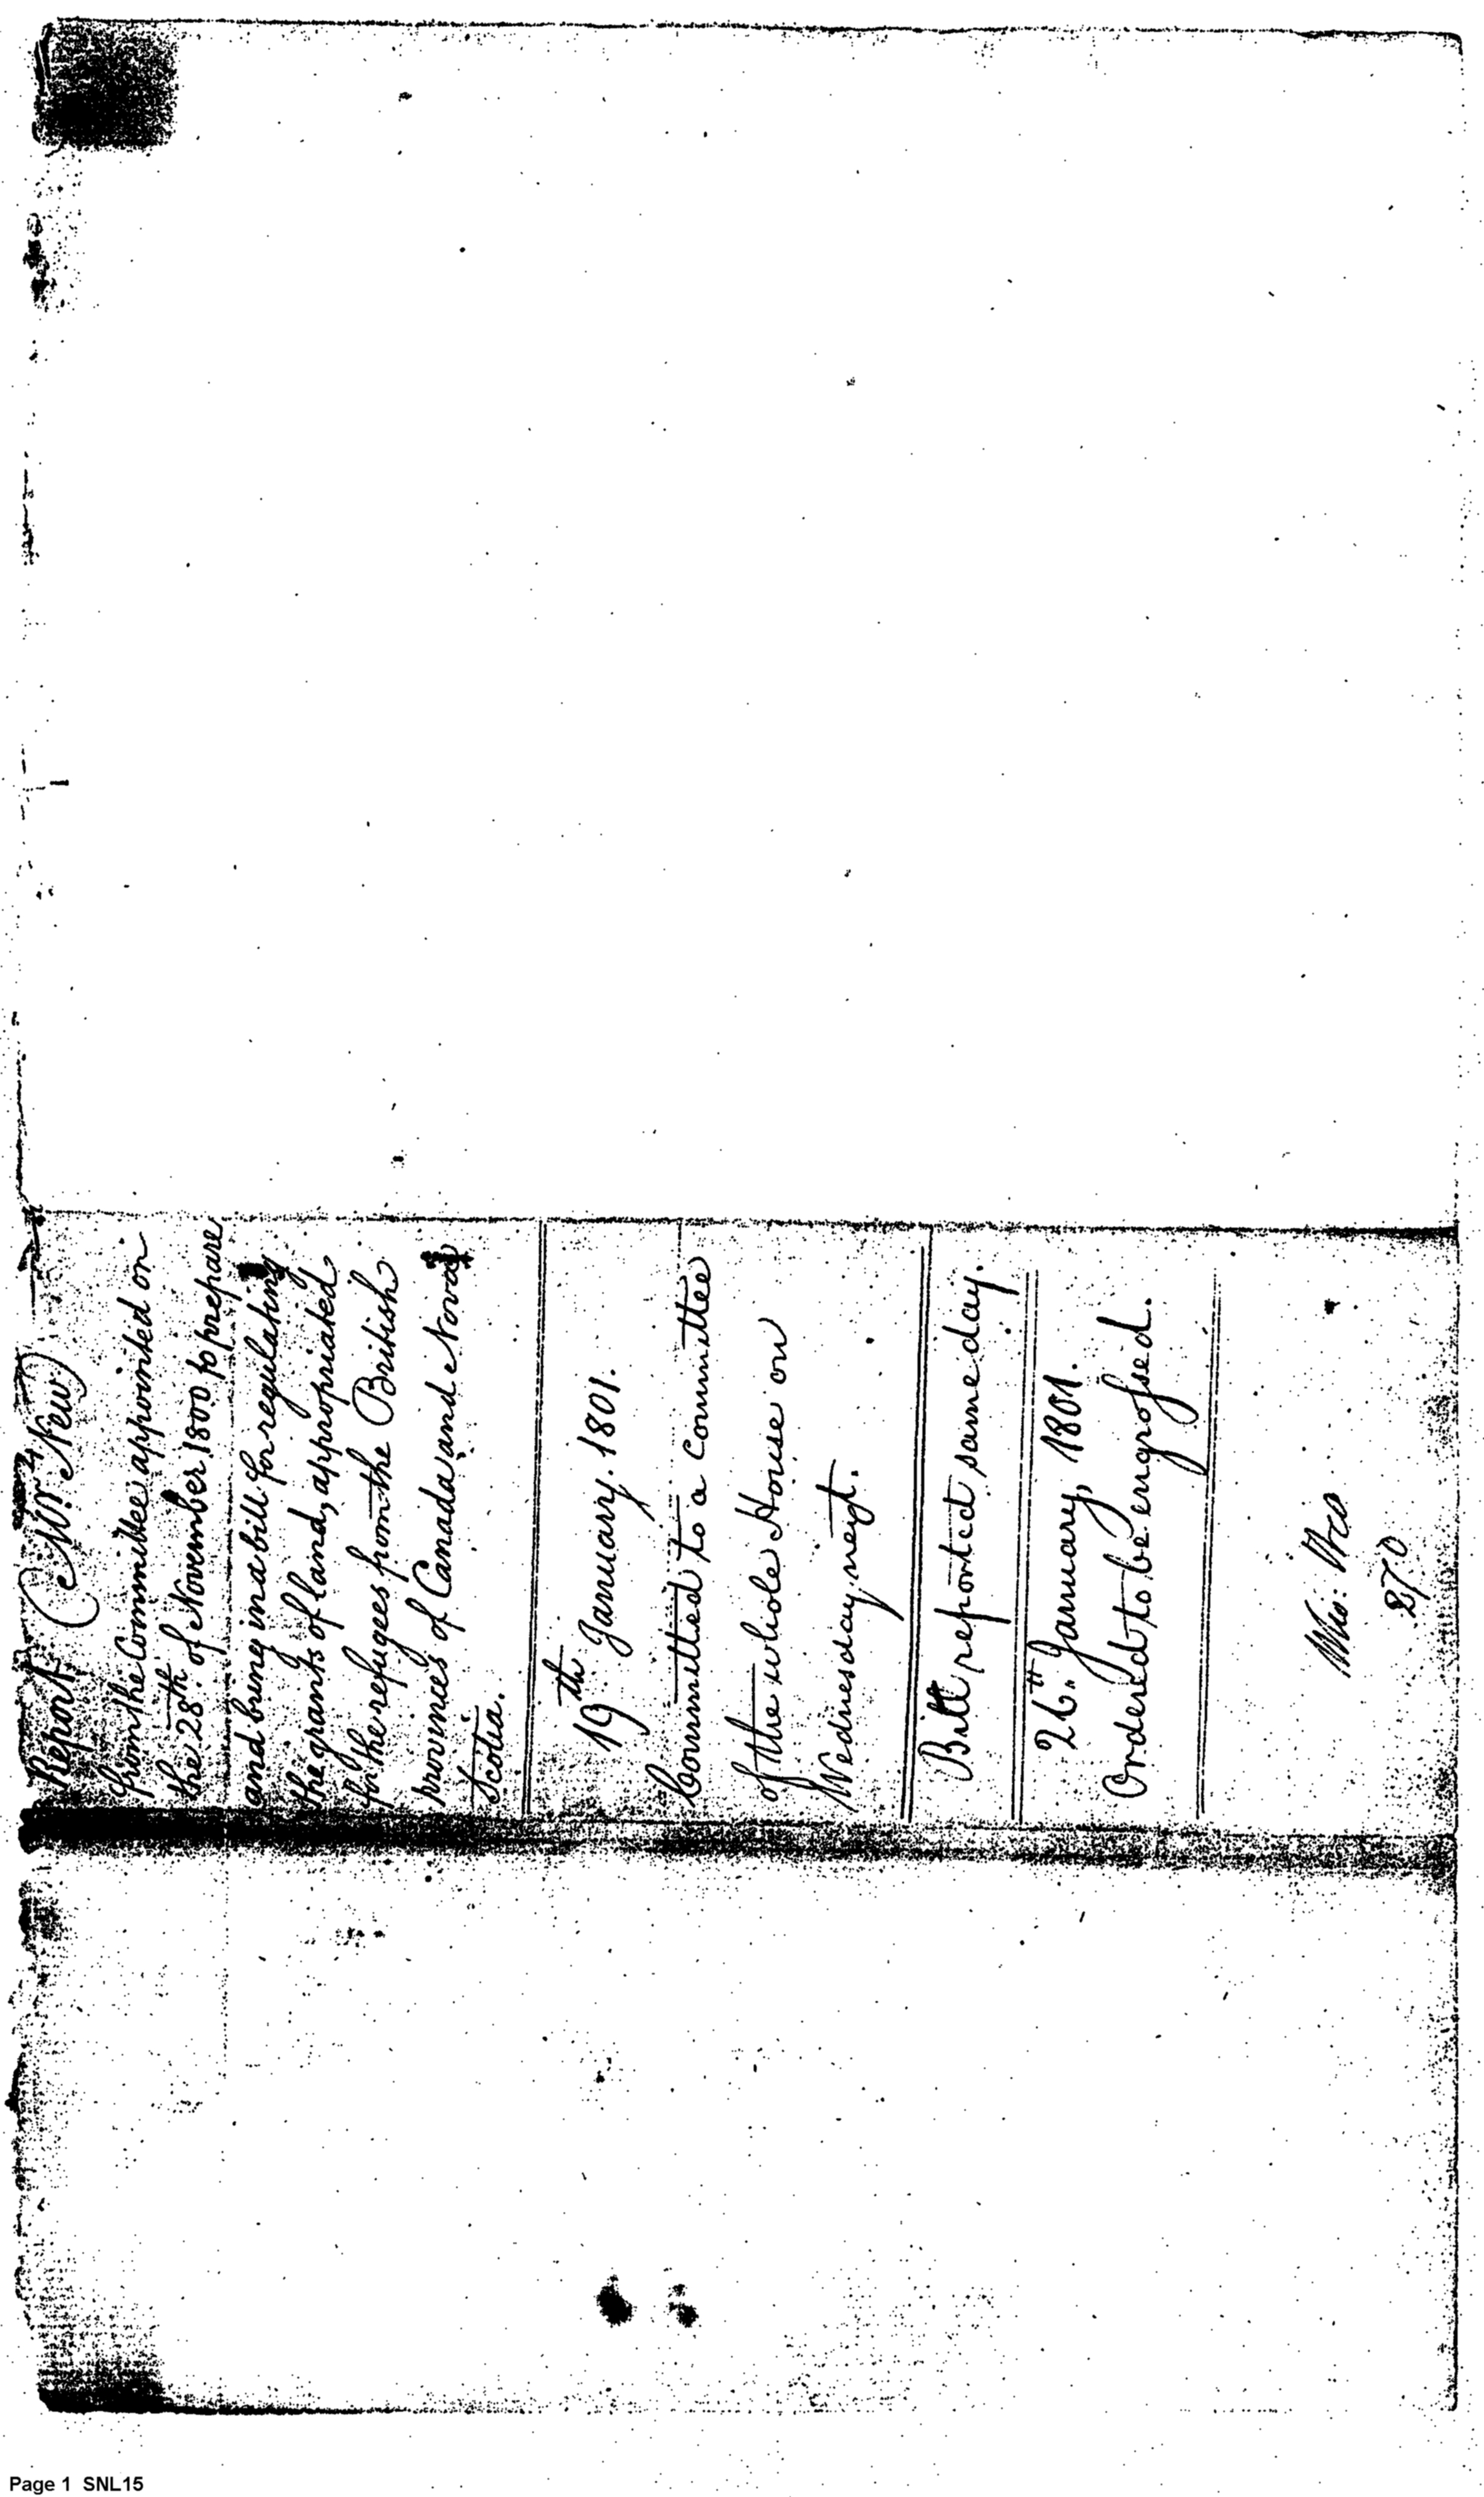 Report (Mr. New)
from the Committee appointed on
the 28th of November 1800 to prepare
and bring in a bill for regulating
the grants of land, appropriated
for the refugees from the British
provinces of Canada and Nova
Scotia.
19th January. 1801.
Committed to a Committee
of the whole House on
Wednesday next.
Bill reported same day.
26th January, 1801.
Ordered to be engrossed.
Page 1 SNL15